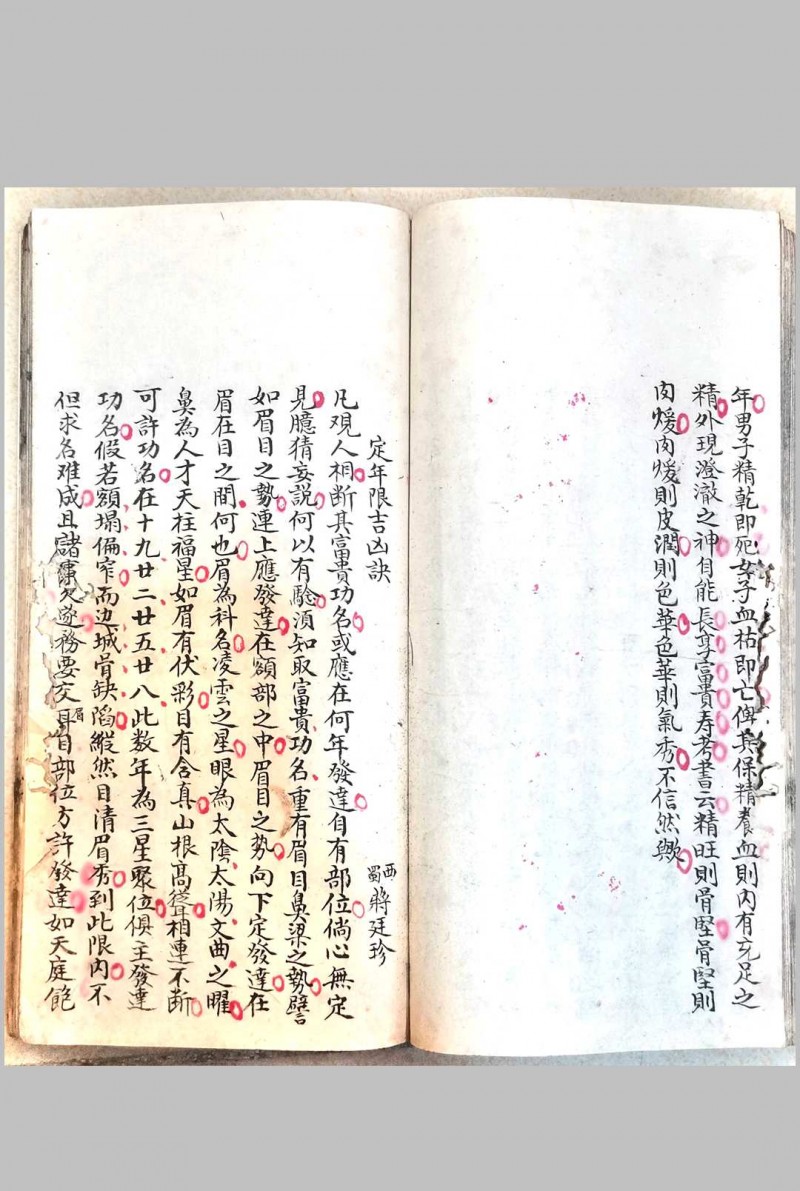 年男子精乾即死女子血枯即亡俾其保精養血則內有充足之
精外現澄澈之神自能長享富貴寿考書云精旺則骨堅骨堅則
肉煖肉煖則皮潤則色華色華則氣秀不信然歟
定年限吉凶訣
西蜀蔣廷珍
凡观人相断其富貴功名或應在何年發達自有部位倘心無定
見臆猜妄説何以有驗須知取富貴功名重有眉目鼻梁之勢譬
如眉目之勢連上應發達在額部之中眉目之勢向下定發達在
眉在目之間何也眉為科名凌雲之星眼為太陰太陽文曲之曜
鼻為人才天柱福星如眉有伏彩目有含真山根髙聳相連不断
可許功名在十九廿二廿五廿八此数年為三星聚位俱主發達
功名假若額塌偏窄而边城骨缺陷縱然目清眉秀到此限內不
但求名难成且諸事欠遂務要交眉目部位方許發達如天庭飽